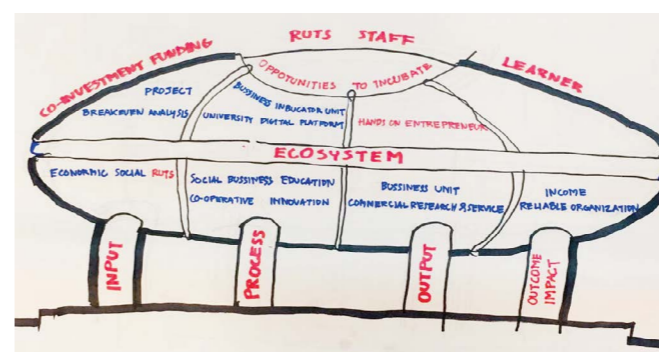 RUTS STAFF
CO-INVESTMENT FUNDING
OPPOTUNITIES TO INCUBATE
LEARNER
PROJECT
BREAKEVEN ANALYSIS
BUSSINESS INBUCATOR UNIT
UNIVERSITY DIGITAL PLATFORM
HANDS ON ENTREPRENEUR
ECOSYSTEM
ECONORMIC SOCIAL RUTS
SOCIAL BUSSINESS EDUCATION
CO-OPERATIVE INNOVATION
BUSSINESS UNIT
COMMERCIAL RESEARCH & SERVICE
INCOME
RELIABLE ORGANIZATION
INPUT
PROCESS
OUTPUT
OUTCOME
IMPACT